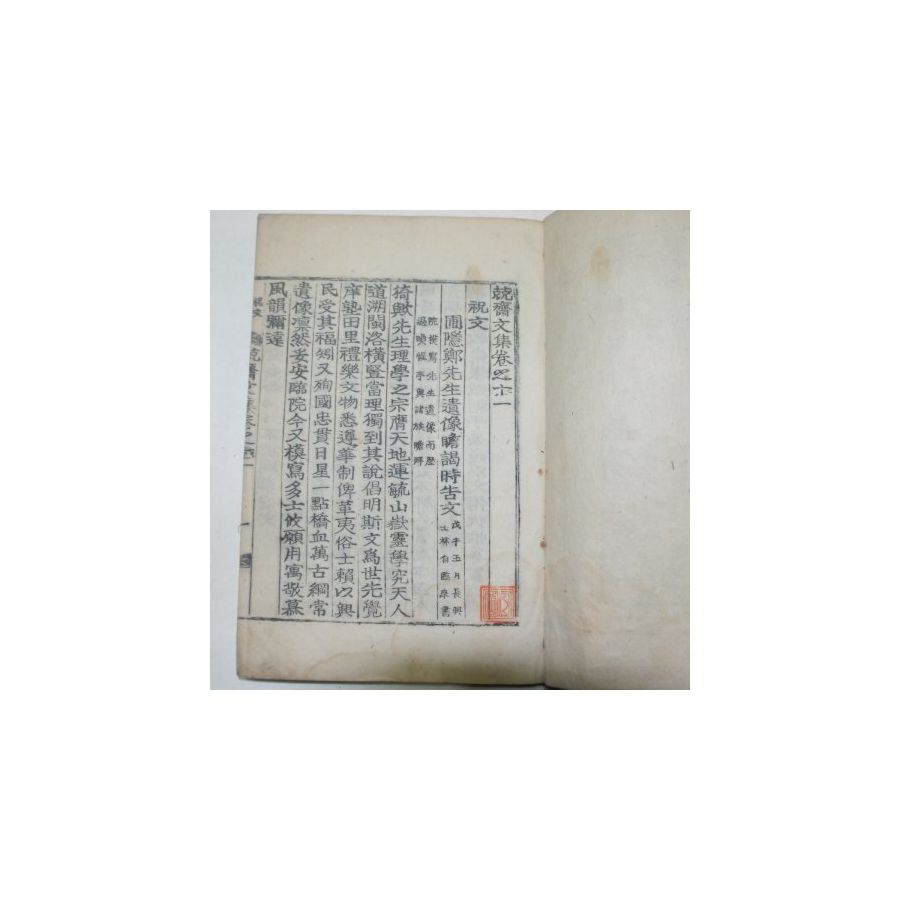 兢齋文集卷之六一
祝文
圃隱鄭先生遺像瞻謁時告文 戊子五月長興士林自臨皐書
院模寫先生遺像而歷過喚惺亭與諸族瞻拜
猗歟先生理學之宗膺天地運毓山嶽靈學究天人
道溯閩洛橫豎當理獨到其說倡明斯文爲世先覺
庠塾田里禮樂文物悉遵華制俾革夷俗士賴以興
民受其福矧又殉國忠貫日星一點橋血萬古綱常
遺像凜然妥安臨院今又模寫多士攸願用寓敬慕
風韻彌遠
祝文